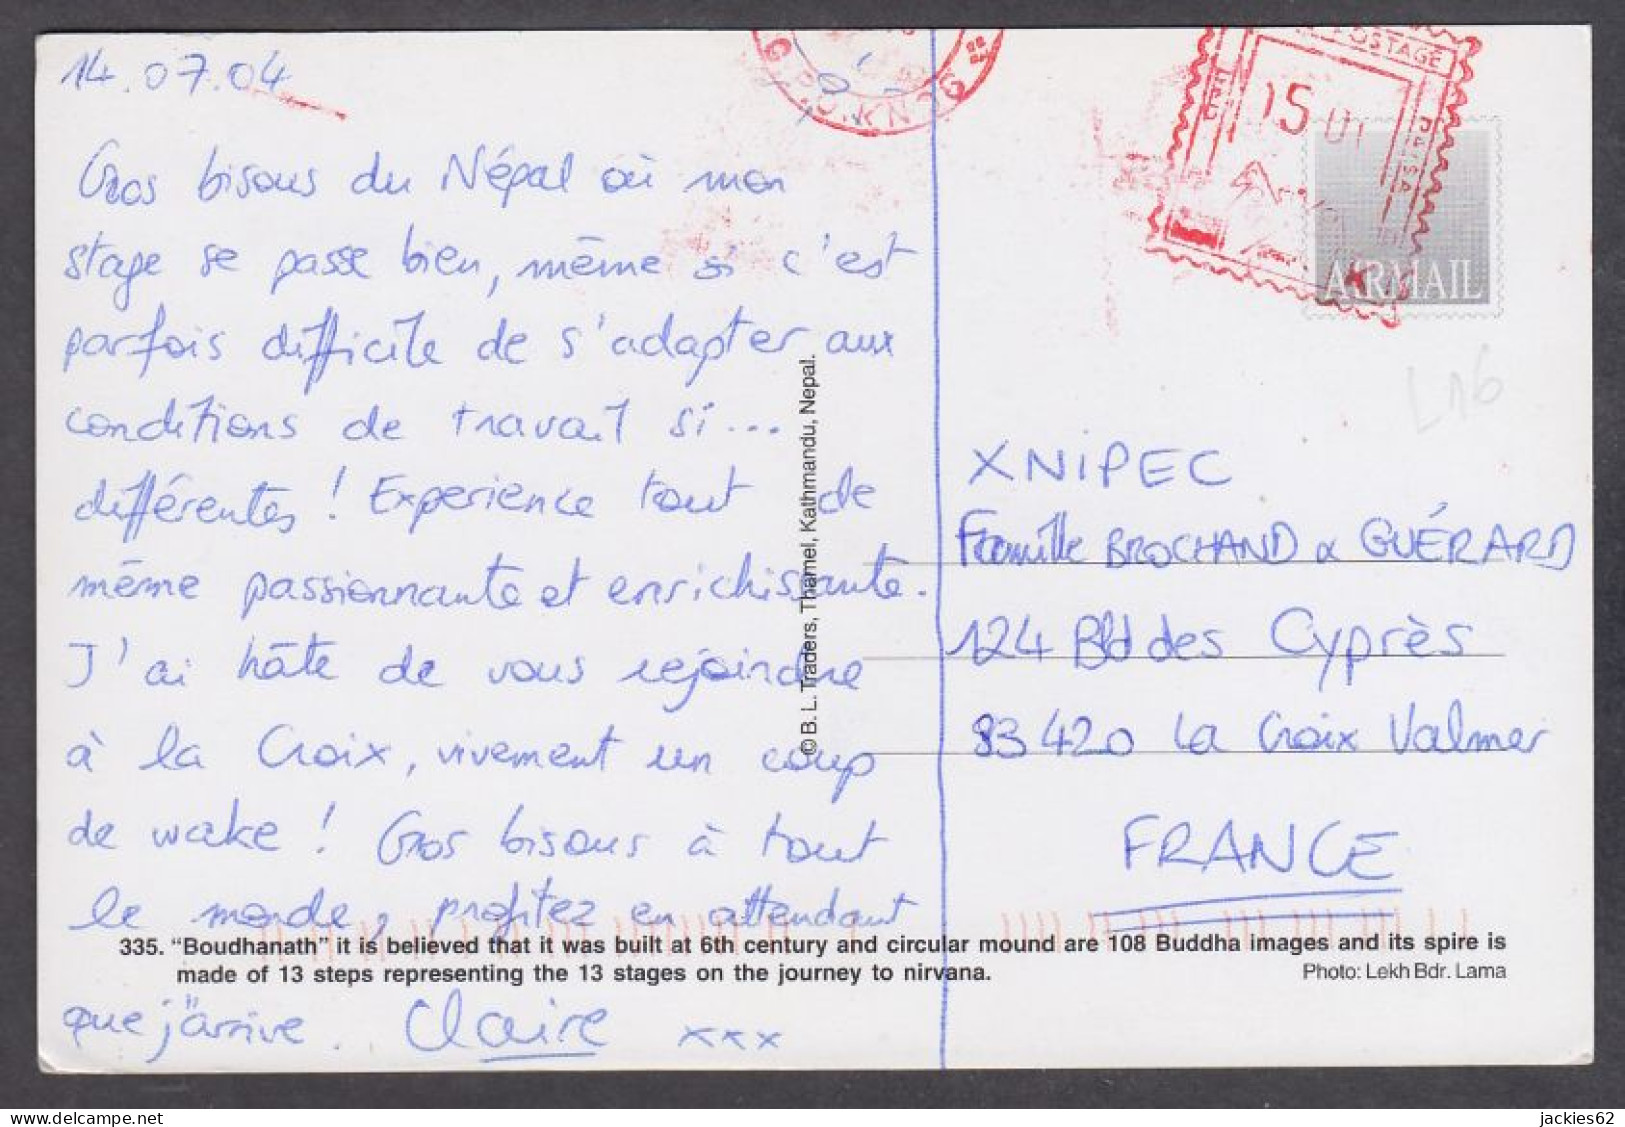 14.07.04
Gros bisous du Népal où mon
stage se passe bien, même si c'est
parfois difficile de s'adapter aux
conditions de travail si...
différentes ! Experience tout de
même passionnante et enrichissante.
J'ai hâte de vous rejoindre
à la Croix, vivement un coup
de wake ! Gros bisous à tout
le monde, profitez en attendant
que j'arrive. Claire xxx
© B. L. Traders, Thamel, Kathmandu, Nepal.
G.P.O.
POSTAGE
PAISA
AIRMAIL
L16
XNIPEC
Famille BROCHAND & GUÉRARD
124 Bld des Cyprès
83420 La Croix Valmer
FRANCE
335. "Boudhanath" it is believed that it was built at 6th century and circular mound are 108 Buddha images and its spire is
made of 13 steps representing the 13 stages on the journey to nirvana.
Photo: Lekh Bdr. Lama
https://www.delcampe.net
jackies62